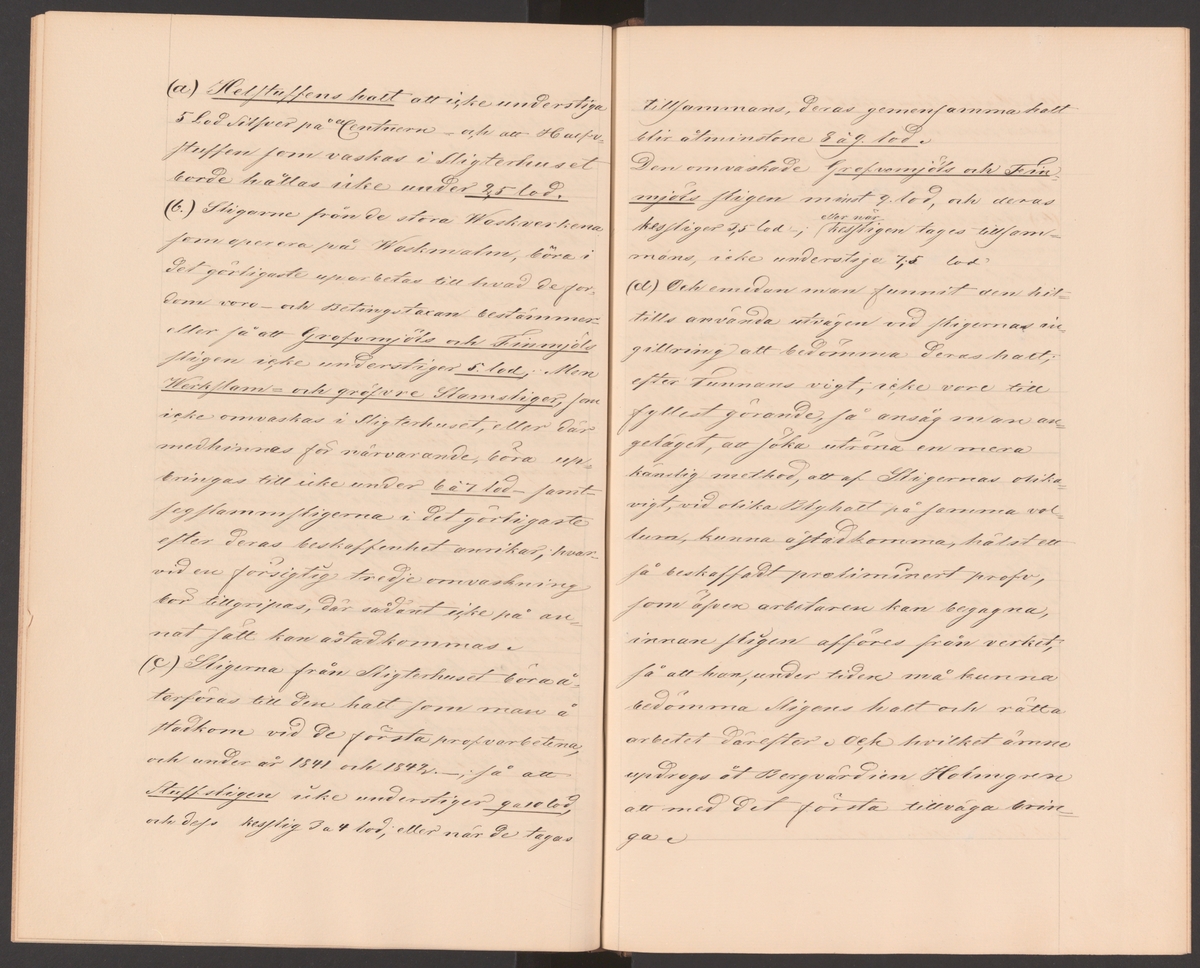 (a.) Helstuffens halt att icke understiga
5 lod Silfver på Centnern – och att Halfv-
stuffen som vaskas i Sligterhuset
borde hållas icke under 2,5 lod.
(b.) Sligarne från de stora Waskverkena
som operera på Waskmalm, böra i
det görligaste uparbetas till hvad de for-
dom voro – och Betingstaxan bestämmer
eller så att Grofvmjöls och Finmjöls
sligen icke understiger 5. lod; Men
Herkslam= och gröfvre Slamsliger, som
icke omvaskas i Sligterhuset, eller där
medhinnas för närvarande, böra up-
bringas till icke under 6 à 7 lod – samt
segslammsligerna i det görligaste
efter deras beskaffenhet anrikas, hvar-
vid en försigtig tredje omvaskning
bör tillgripas, där sådant icke på an-
nat sätt kan åstadkommas.
(c.) Sligerna från Sligterhuset böra å-
terföras till den halt som man å
stadkom vid de första profvarbetena,
och under år 1841 och 1842. –; så att
Stuffsligen icke understiger 9 a 10 lod,
och dess kesslig 3 a 4 lod; eller när de tagas
tillsammans, deras gemensamma halt
blir åtminstone 8 à 9. lod.
Den omvaskade Grofvmjöls och Fin-
mjöls sligen minst 9. lod, och deras
kessliger 3,5 lod –; eller når
kessligen tages tillsam=
mans, icke understiga 7,5 lod
(d.) Och emedan man funnit den hit=
tills använda utvägen vid sligernas in-
gillring att bedömma deras halt;
efter Tunnans vigt, icke vore till
fyllest görande, så ansåg man an-
geläget, att söka utröna en mera
känslig method, att af Sligernas olika
vigt, vid olika Blyhalt på samma vol-
lum, kunna åstadkomma, hälst ett
så beskaffadt preliminert prof,
som äfven arbetaren kan begagna,
innan sligen afföres från verket;
så att han, under tiden må kunna
bedömma Sligens halt och rätta
arbetet därefter. Och hvilket ämne
updrogs åt Bergvärdien Holmgren
att med det första tillväga brin=
ga.